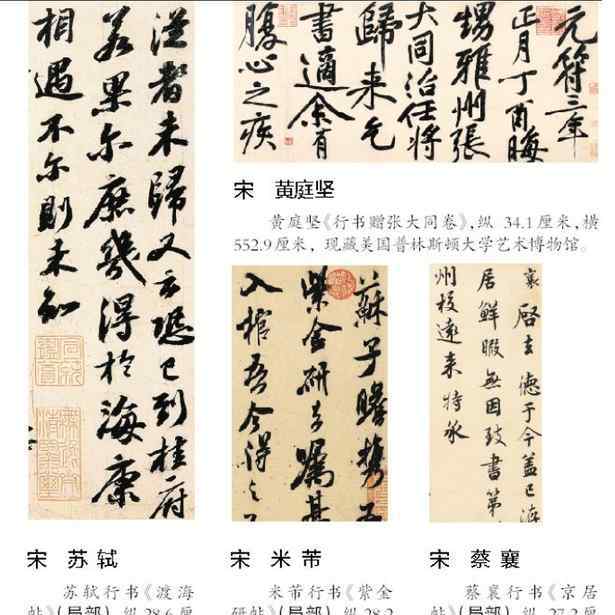 從者未歸又云恐已到桂府
若果尔庶幾得於海康
相遇不尔則未知
元符三年
正月丁酉晦
甥雅州張
大同治任將
歸来乞
書適余有
腹心之疾
宋 黄庭坚
黄庭坚《行书赠张大同卷》,纵 34.1厘米,横
552.9厘米，现藏美国普林斯顿大学艺术博物馆。
蘇子瞻携吾
紫金研去嘱其
入棺吾今得之
襄啓去德于今蓋已浹
居鮮暇無因致書第
州校遠来特承
宋 苏轼
苏轼行书《渡海
帖》(局部)，纵28.6厘
宋 米芾
米芾行书《紫金
研帖》(局部)，纵28.2
宋 蔡襄
蔡襄行书《京居
帖》(局部)，纵 27.2厘